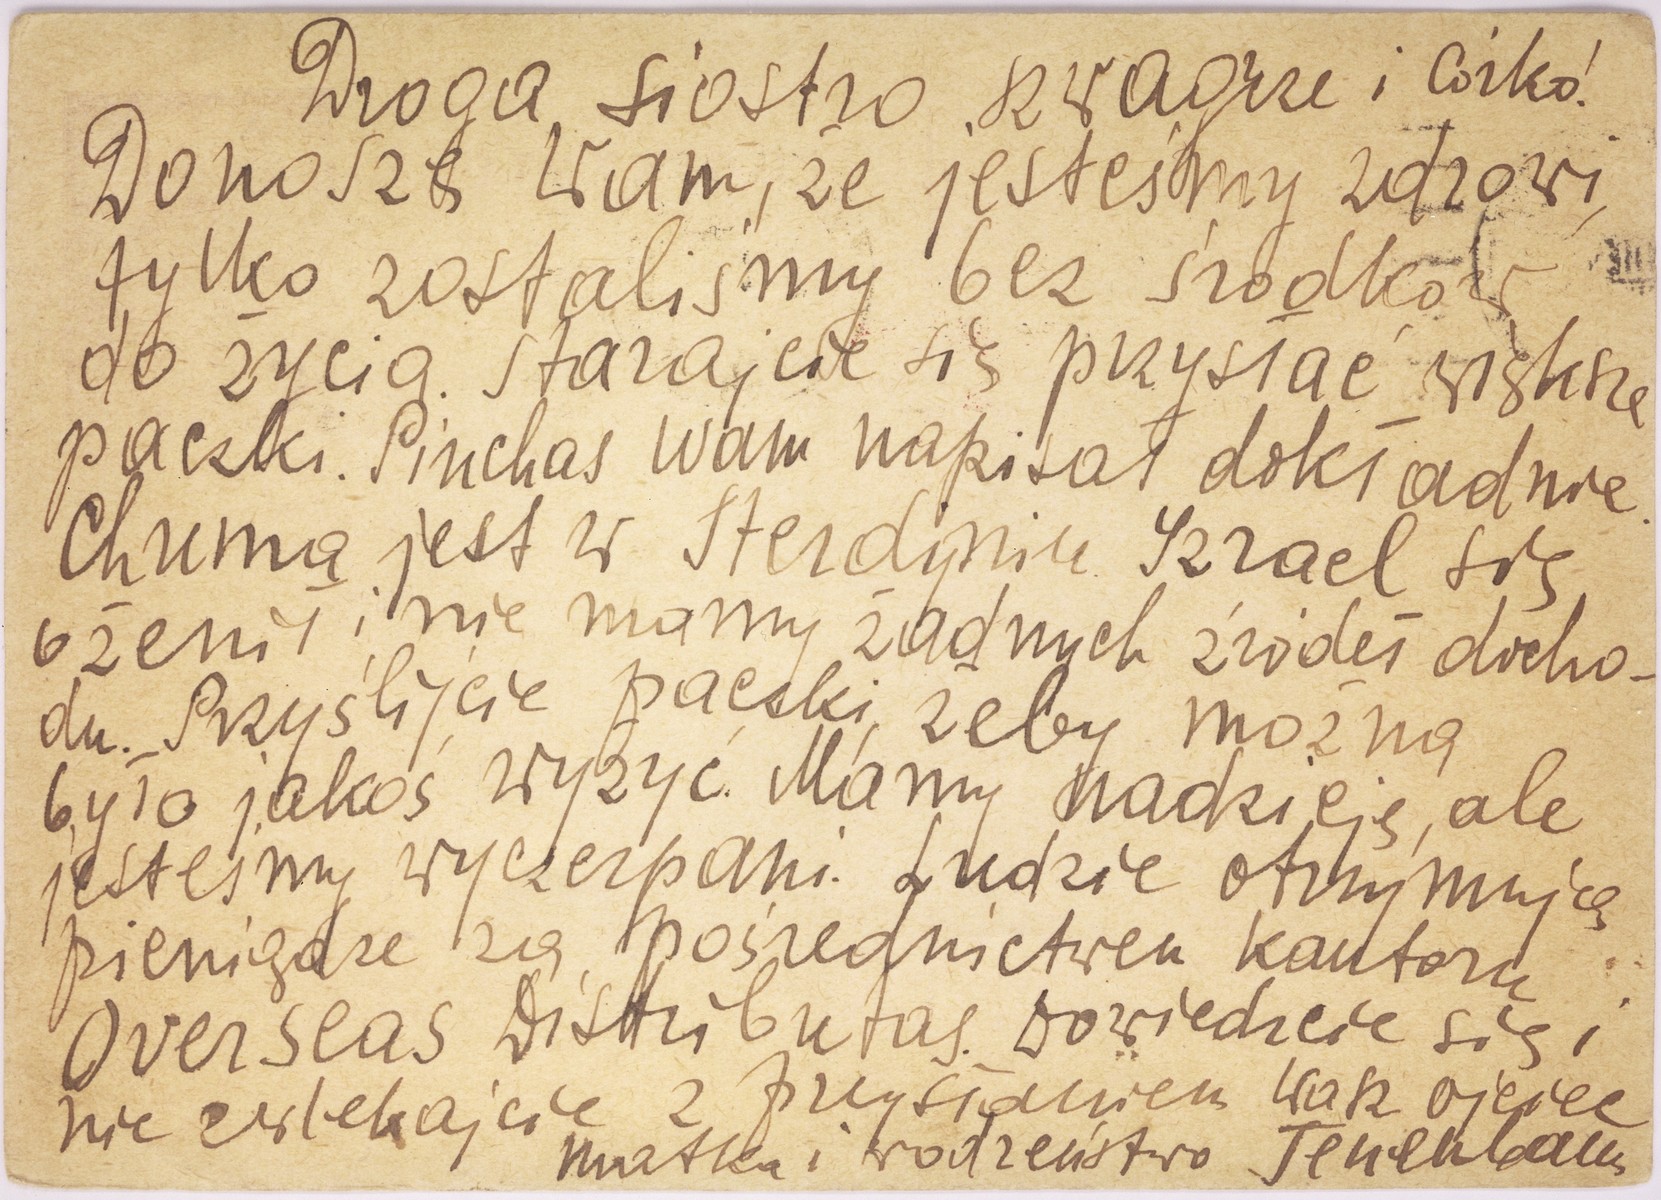 Droga siostro szwagrze i córko!
Donoszę Wam, że jesteśmy zdrowi,
tylko zostaliśmy bez środków
do życia. Starajcie się przysłać większe
paczki. Pinchas Wam napisał dokładnie.
Chuma jest w Sterdyniu. Izrael się
ożenił i nie mamy żadnych źródeł docho-
du. Przyślijcie paczki, żeby można
było jakoś wyżyć. Mamy nadzieję, ale
jesteśmy wyczerpani. Ludzie otrzymują
pieniądze za pośrednictwem kantoru
Overseas Distributas. Dowiedzcie się i
nie zwlekajcie z przysłaniem Wasz ojciec
matka i rodzeństwo Tenenbaum